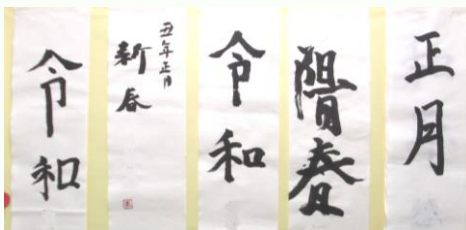 正月
陽春
令和
丑年正月
新春
令和